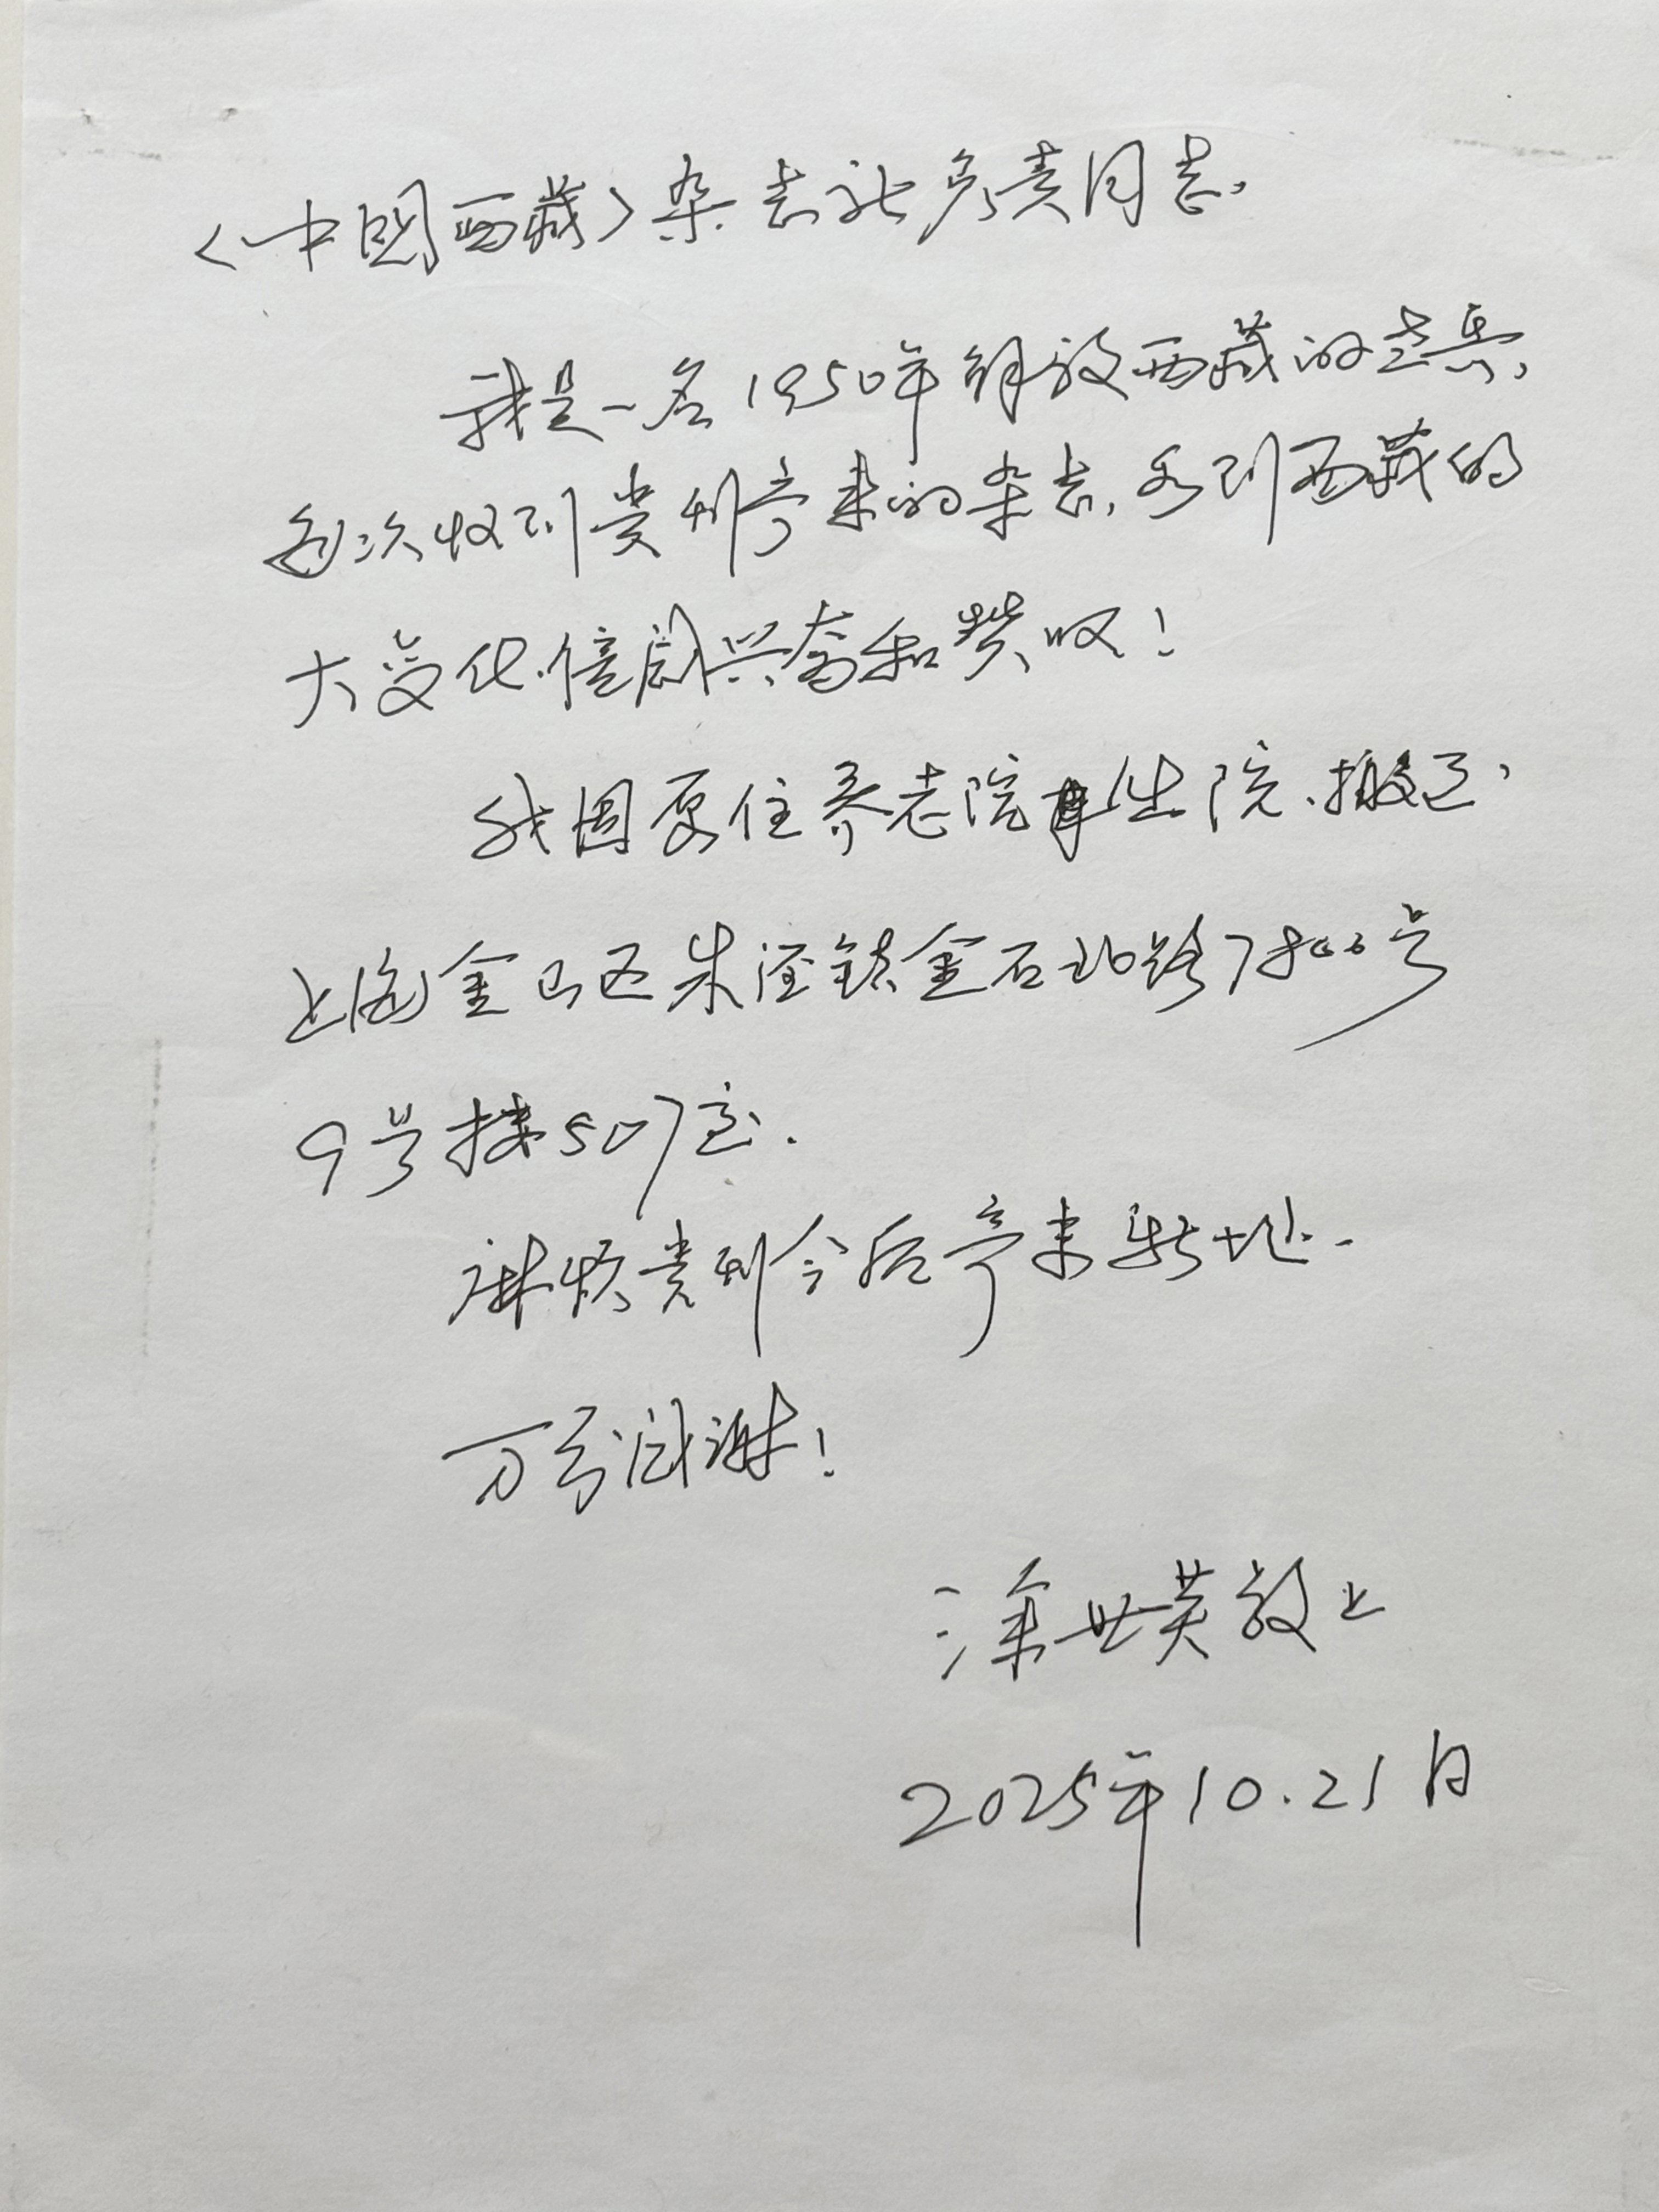 <中国西藏>杂志社负责同志、
我是一名1950年解放西藏的老兵,
每次收到贵刊寄来的杂志,看到西藏的
大变化、倍感兴奋和赞叹!
我因原住养老院 院、搬迁,
上海金山区朱泾镇金石北路7800号
9号楼507室.
麻烦贵刊今后寄来新址.
万分感谢!
涂世英敬上
2025年10.21日